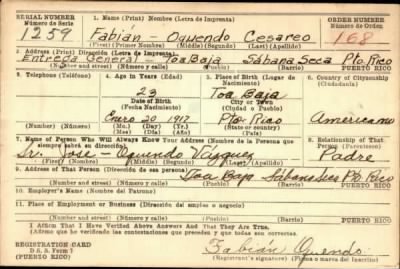 SERIAL NUMBER 1. Name (Print) Nombre (Letra de Imprenta) ORDER NUMBER
Número de Serie Número de Orden
1259 Fabián Oquendo Cesareo 168
(First) (Primer Nombre) (Middle) (Segundo) (Last) (Apellido)
2. Address (Print) Dirección (Letra de Imprenta)
Entrega General - Toa Baja Sábana Seca Pto. Rico
(Number and street) (Número y calle) (Pueblo) (Barrio) PUERTO RICO
3. Telephone (Teléfono) 4. Age in Years (Edad) 5. Place of Birth (Lugar de Nacimiento) 6. Country of Citizenship (Ciudadanía)
23 Toa Baja
Date of Birth City or Town
(Fecha Nacimiento) (Ciudad o Pueblo)
Enero 20 1917 Pto. Rico Americano
(Number) (Número) (Mo.) (Day) (Yr.) (State or country)
(Mes) (Día) (Año) (Estado o país)
7. Name of Person Who Will Always Know Your Address (Nombre de la Persona que siempre sabrá su dirección) 8. Relationship of That Person (Parentesco)
Sr. José - Oquendo Vázquez Padre
(First) (Primer Nombre) (Middle) (Segundo) (Last) (Apellido)
9. Address of That Person (Dirección de esa persona)
Toa Baja Sábana Seca Pto. Rico
(Number and street) (Número y calle) (Pueblo) (Barrio) PUERTO RICO
10. Employer's Name (Nombre del Patrono)
11. Place of Employment or Business (Dirección del empleo o negocio)
(Number and street) (Número y calle) (Pueblo) (Barrio) PUERTO RICO
I Affirm That I Have Verified Above Answers And That They Are True.
(Afirmo que he verificado las contestaciones que preceden y que todas son correctas.)
REGISTRATION CARD
D. S. S. Form 1 Fabián Oquendo
(PUERTO RICO) (Registrant's signature) (Firma o marca del Inscrito)